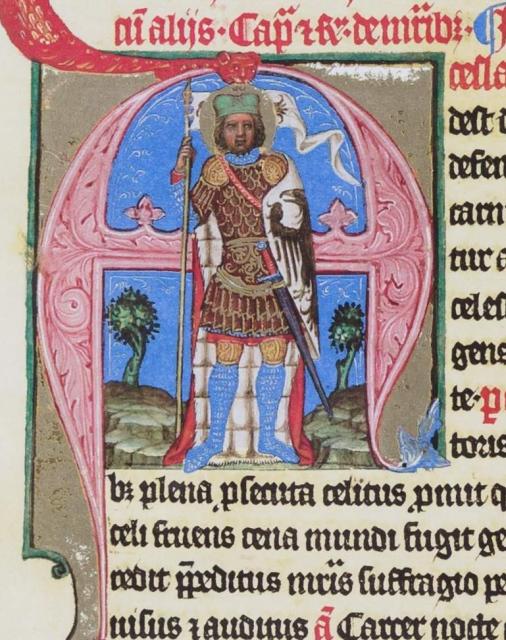 cũ alijs · Cap̃ ⁊ R̃. de mr̃ibꝫ ·
cella
dest d
defen
carni
tur a
celest
gens
te · p
toris
bꝫ plena ꝑsecuta celitus ꝓmit q
celi fruens cena mundi fugit ge
cedit p̃peditus mr̃is suffragio pe
uisus ⁊ auditus ã Carcer nocte